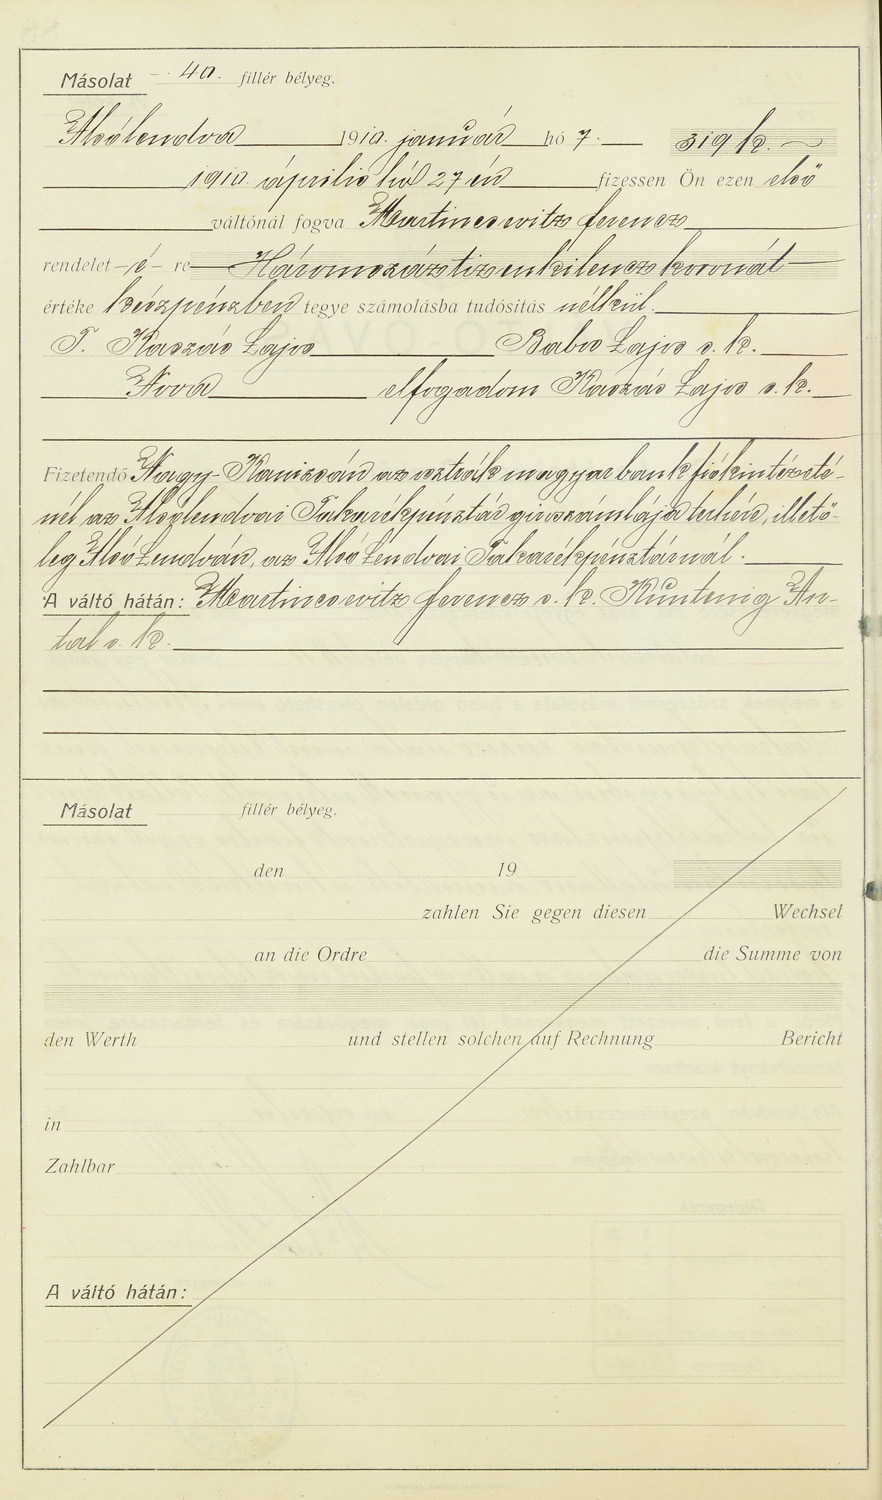 Másolat - 40. fillér bélyeg.
Alsólendva 1910. január hó 7. 319 k.
1910. április hó 27 én fizessen Ön ezen első
váltónál fogva Martincsevitz Ferencz
rendelet-é-re Háromszáztizenkilencz koronát
értéke készpénzben tegye számolásba tudósítás nélkül.
T. Kaszás Lajos Babos Lajos s. k.
Nova elfogadom Kaszás Lajos s. k.
Fizetendő Nagy-Kanizsán az osztrák magyar bank fiókintézeté-
nél az Alsólendvai Takarékpénztár giroszámlája terhére, illető-
leg Alsó Lendván, az Alsó Lendvai Takarékpénztárnál.
A váltó hátán: Martincsevitz Ferencz s. k. An-
tal s. k.
Másolat fillér bélyeg.
den 19
zahlen Sie gegen diesen Wechsel
an die Ordre die Summe von
den Werth und stellen solchen auf Rechnung Bericht
in
Zahlbar
A váltó hátán: